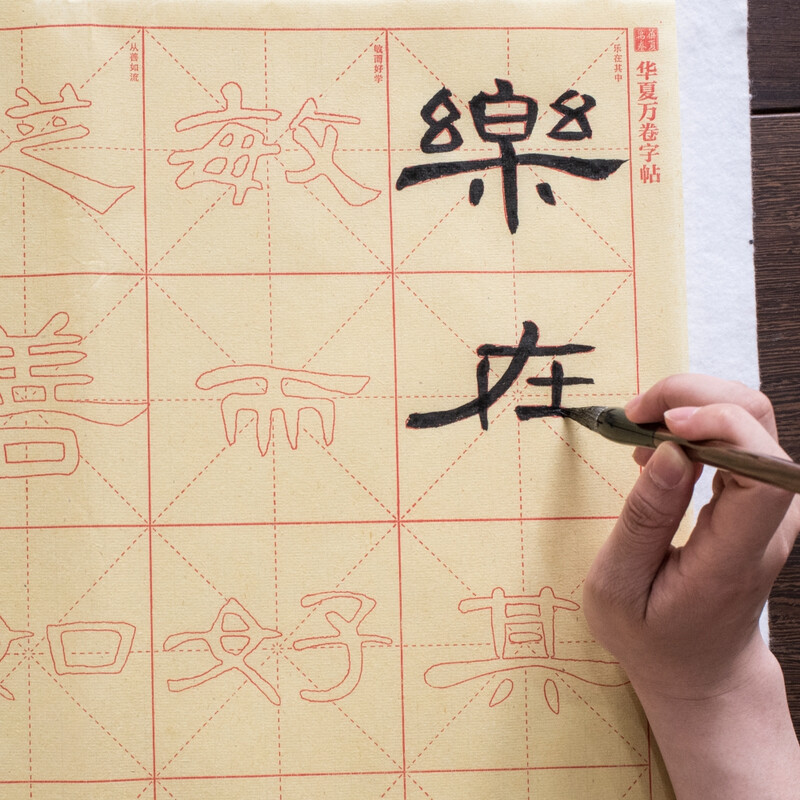 华夏万卷字帖
乐在其中
樂在其
敏而好学
敏而好
从善如流
善如